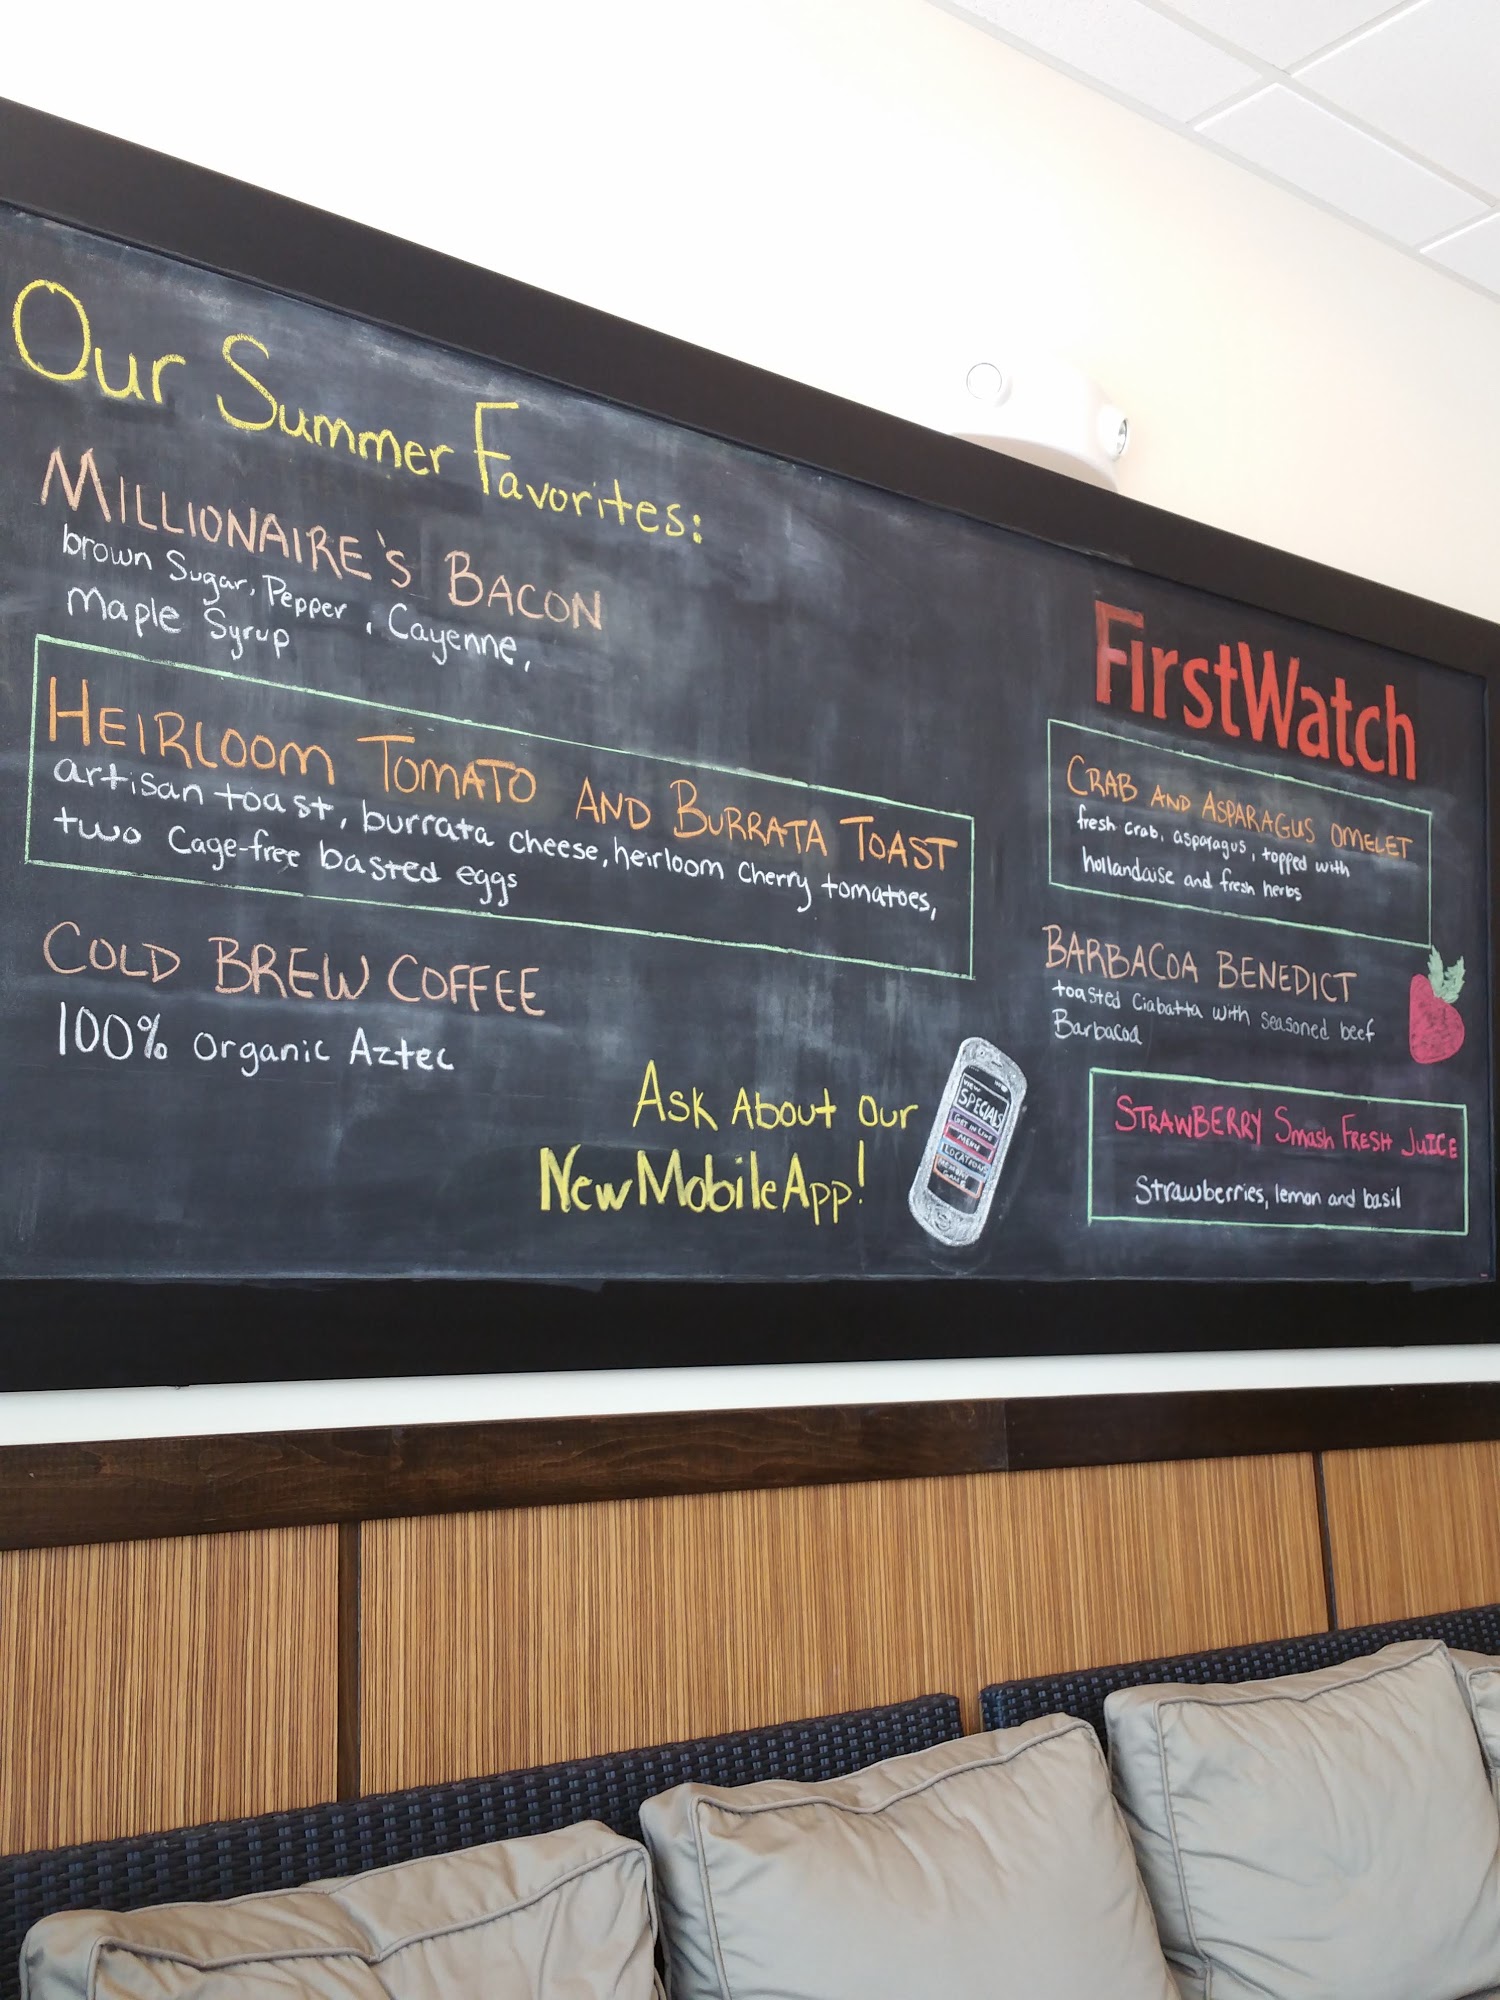 Our Summer Favorites:
MILLIONAIRE'S BACON
brown Sugar, Pepper, Cayenne,
Maple Syrup
HEIRLOOM TOMATO AND BURRATA TOAST
artisan toast, burrata cheese, heirloom Cherry tomatoes,
two Cage-free basted eggs
COLD BREW COFFEE
100% Organic Aztec
Ask About Our
New Mobile App!
VIEW
SPECIALS
GET IN LINE
MENU
LOCATIONS
FirstWatch
CRAB AND ASPARAGUS OMELET
fresh crab, asparagus, topped with
hollandaise and fresh herbs
BARBACOA BENEDICT
toasted Ciabatta with seasoned beef
Barbacoa
STRAWBERRY Smash FRESH JUICE
Strawberries, lemon and basil